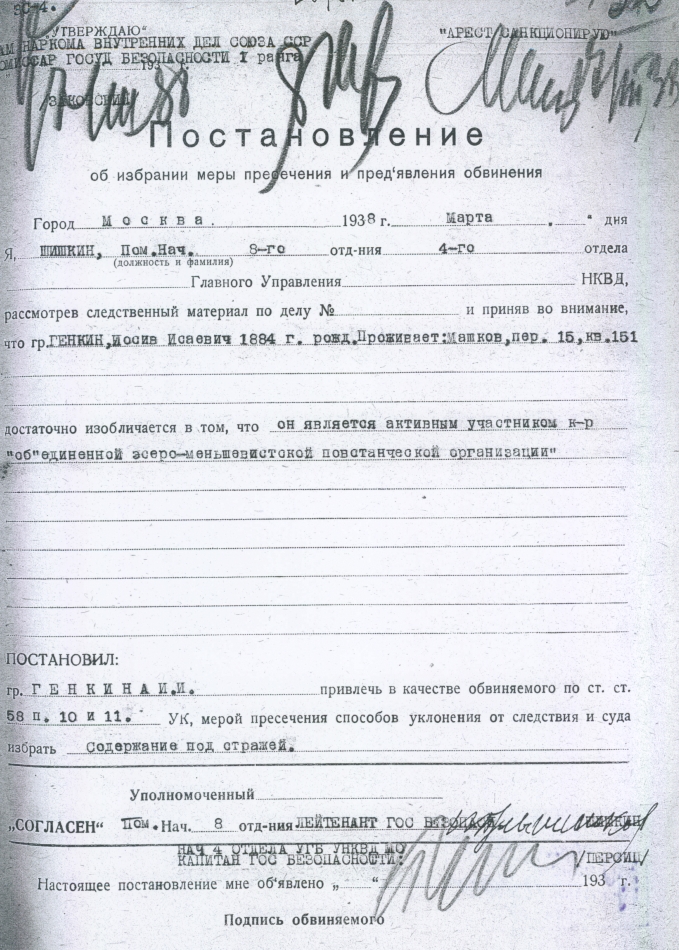 „УТВЕРЖДАЮ“
"АРЕСТ САНКЦИОНИРУЮ"
АМ НАРКОМА ВНУТРЕННИХ ДЕЛ СОЮЗА ССР
ОМИССАР ГОСУД БЕЗОПАСНОСТИ I ранга
193
/ЗАКОВСКИЙ
Постановление
об избрании меры пресечения и пред‘явления обвинения
Город Москва. 1938 г. Марта „ “ дня
Я, ШИШКИН, Пом.Нач. 8-го отд-ния 4-го отдела
(должность и фамилия)
Главного Управления НКВД,
рассмотрев следственный материал по делу № и приняв во внимание,
что гр.ГЕНКИН,Иосив Исаевич 1884 г. рожд.Проживает:Машков,пер. 15,кв.151
достаточно изобличается в том, что он является активным участником к-р
"об"единенной эсеро-меньшевистской повстанческой организации"
ПОСТАНОВИЛ:
гр. ГЕНКИНА И.И. привлечь в качестве обвиняемого по ст. ст.
58 п. 10 и 11. УК, мерой пресечения способов уклонения от следствия и суда
избрать Содержание под стражей.
Уполномоченный
„СОГЛАСЕН“ Пом. Нач. 8 отд-ния ЛЕЙТЕНАНТ ГОС БЕЗОПАС
НАЧ 4 ОТДЕЛА УГБ УНКВД МО
КАПИТАН ГОС БЕЗОПАСНОСТИ: /ПЕРСИЦ/
Настоящее постановление мне об‘явлено „ “ 193 г.
Подпись обвиняемого